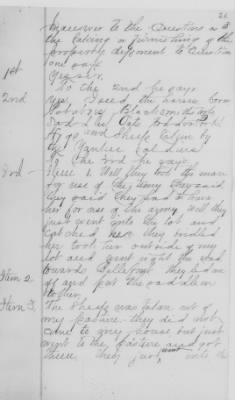 26
answer to the Questions as to
the taking or furnishing of the
property deponent to Question
one says
1st Yes sir.
To the 2nd he says
2nd Yes I seed the horse
and
Hogs and Sheep taken by
the Yankee Soldiers
To the 3rd he says.
3rd Item 1. Well they took the mare
for use of the army they said
they said they had to have
her for use of the army. Well they
just went into the lot and
catched her they bridled
her took her outside of my
lot and went right the road
towards they led her
off and put the saddle on
to her.
Item 2
Item 3, The Sheep was taken out of
my pasture they did not
come to my house but just
went to the pasture and got
them they just went into the